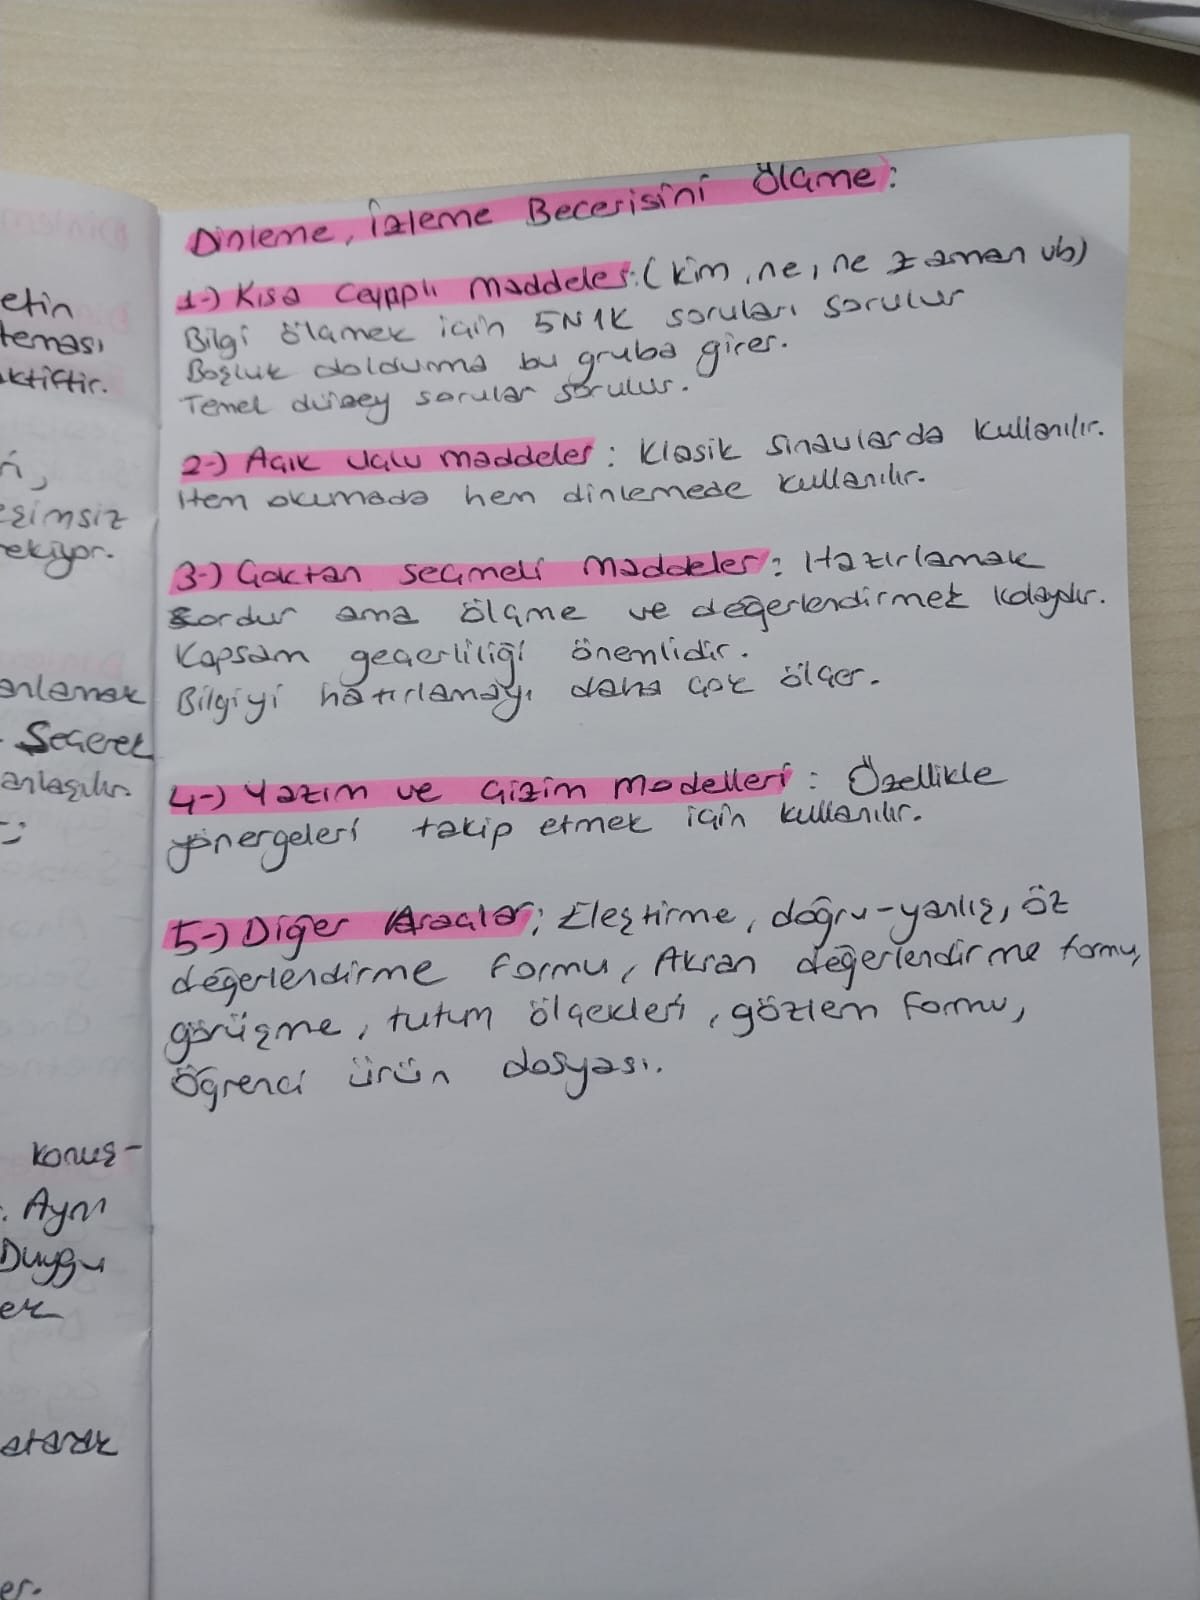 Dinleme, İzleme Becerisini Ölçme:
1-) Kısa Cevaplı Maddeler: (kim, ne, ne zaman vb)
Bilgi ölçmek için 5N1K soruları sorulur
Boşluk doldurma bu gruba girer.
Temel düzey sorular sorulur.
2-) Açık Uçlu Maddeler: Klasik sınavlarda kullanılır.
Hem okumada hem dinlemede kullanılır.
3-) Çoktan Seçmeli Maddeler: Hazırlamak
zordur ama ölçme ve değerlendirmek kolaydır.
Kapsam geçerliliği önemlidir.
Bilgiyi hatırlamayı daha çok ölçer.
4-) Yazım ve Çizim Modelleri: Özellikle
yönergeleri takip etmek için kullanılır.
5-) Diğer Araçlar: Eleştirme, doğru-yanlış, öz
değerlendirme formu, Akran değerlendirme formu,
görüşme, tutum ölçekleri, gözlem formu,
Öğrenci ürün dosyası.
etin
teması
aktiftir.
eşimsiz
rekiyor.
anlamak
Seçerek
anlaşılır.
konuş-
. Aynı
Duygu
er
atarak
er.